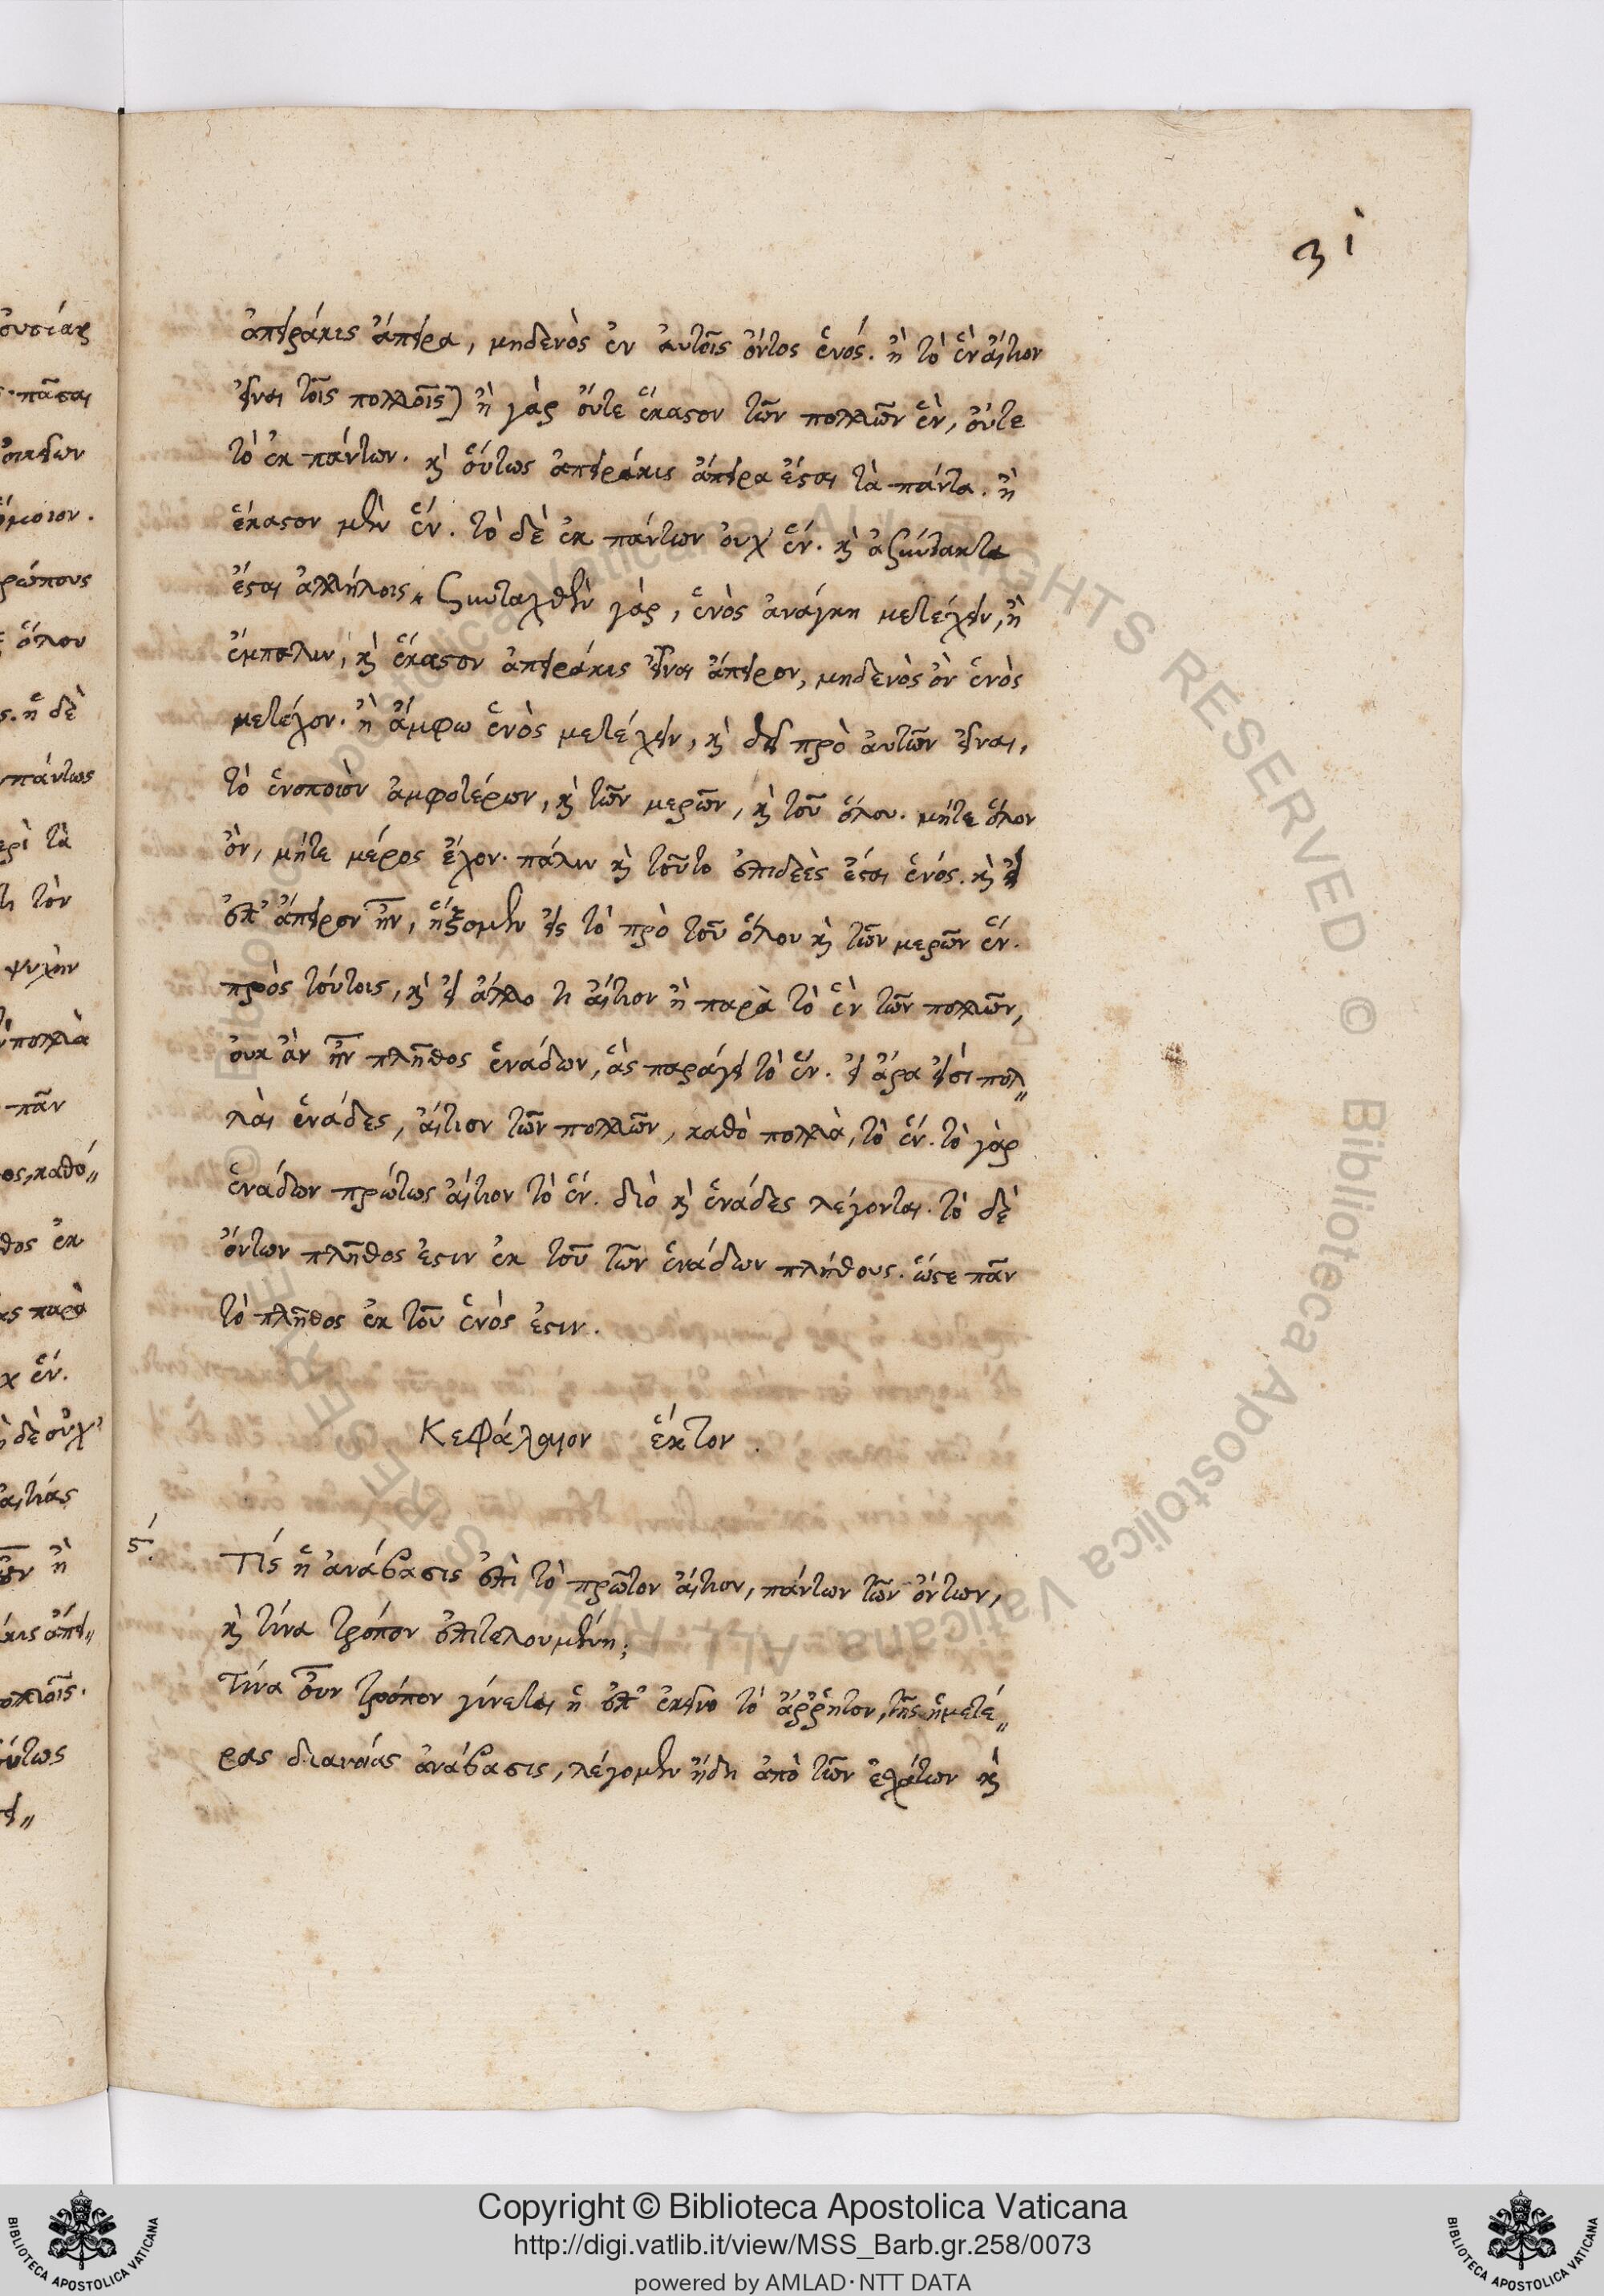 31
ἀπειράκις ἄπειρα, μηδενὸς ἐν αὐτοῖς ὄντος ἑνός. ἢ τὸ ἓν αἴτιον
εἶναι τοῖς πολλοῖς) ἢ γὰρ οὔτε ἕκαστον τῶν πολλῶν ἓν, οὔτε
τὸ ἐκ πάντων. καὶ οὕτως ἀπειράκις ἄπειρα ἔσται τὰ πάντα. ἢ
ἕκαστον μὲν ἕν. τὸ δὲ ἐκ πάντων οὐχ ἕν. καὶ ἀσύντακτα
ἔσται ἀλλήλοις. συνταχθὲν γὰρ, ἑνὸς ἀνάγκη μετέχειν, ἢ
ἔμπαλιν, καὶ ἕκαστον ἀπειράκις εἶναι ἄπειρον, μηδενὸς ὂν ἑνὸς
μετέχον. ἢ ἄμφω ἑνὸς μετέχειν, καὶ δεῖ πρὸ αὐτῶν εἶναι,
τὸ ἑνοποιὸν ἀμφοτέρων, καὶ τῶν μερῶν, καὶ τοῦ ὅλου. μήτε ὅλον
ὂν, μήτε μέρος ἔχον. πάλιν καὶ τοῦτο ἐπιδεὲς ἔσται ἑνός. καὶ εἰ
ἐπ' ἄπειρον ἦν, ἥξομεν εἰς τὸ πρὸ τοῦ ὅλου καὶ τῶν μερῶν ἕν.
πρὸς τούτοις, καὶ εἰ ἄλλο τι αἴτιον ἢ παρὰ τὸ ἓν τῶν πολλῶν,
οὐκ ἂν ἦν πλῆθος ἑνάδων, ἃς παράγει τὸ ἕν. εἰ ἄρα εἰσὶ πολ„
λαὶ ἑνάδες, αἴτιον τῶν πολλῶν, καθὸ πολλὰ, τὸ ἕν. τὸ γὰρ
ἑνάδων πρώτως αἴτιον τὸ ἕν. διὸ καὶ ἑνάδες λέγονται. τὸ δὲ
ὄντων πλῆθος ἐστιν ἐκ τοῦ τῶν ἑνάδων πλήθους. ὥστε πᾶν
τὸ πλῆθος ἐκ τοῦ ἑνὸς ἐστιν.
Κεφάλαιον ἕκτον.
ϛ΄. Τίς ἡ ἀνάβασις ἐπὶ τὸ πρῶτον αἴτιον, πάντων τῶν ὄντων,
καὶ τίνα τρόπον ἐπιτελουμένη;
Τίνα οὖν τρόπον γίνεται ἡ ἐπ' ἐκεῖνο τὸ ἄῤῥητον, τῆς ἡμετέ„
ρας διανοίας ἀνάβασις, λέγομεν ἤδη ἀπὸ τῶν ἐσχάτων καὶ
Copyright © Biblioteca Apostolica Vaticana
http://digi.vatlib.it/view/MSS_Barb.gr.258/0073
powered by AMLAD·NTT DATA